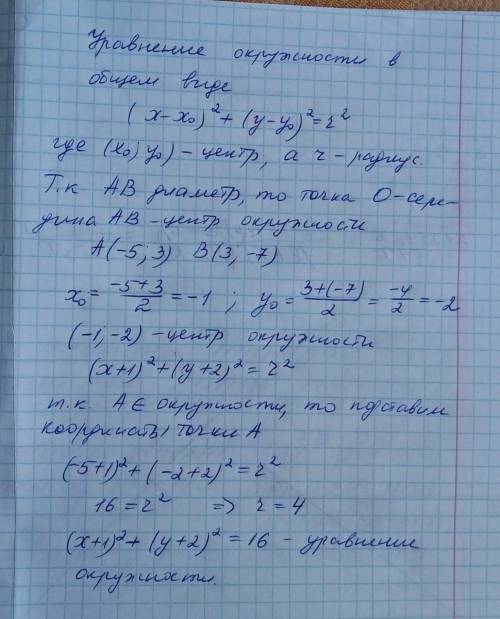 Уравнение окружности в
общем виде
(x-x₀)² + (y-y₀)² = r²
где (x₀; y₀) - центр, а r - радиус.
Т.к AB диаметр, то точка O - сере-
дина AB - центр окружности
A(-5; 3) B(3; -7)
x₀ = (-5+3)/2 = -1 ; y₀ = (3+(-7))/2 = -4/2 = -2
(-1, -2) - центр окружности
(x+1)² + (y+2)² = r²
т.к. A ∈ окружности, то подставим
координаты точки A
(-5+1)² + (-2+2)² = r²
16 = r² => r = 4
(x+1)² + (y+2)² = 16 - уравнение
окружности.